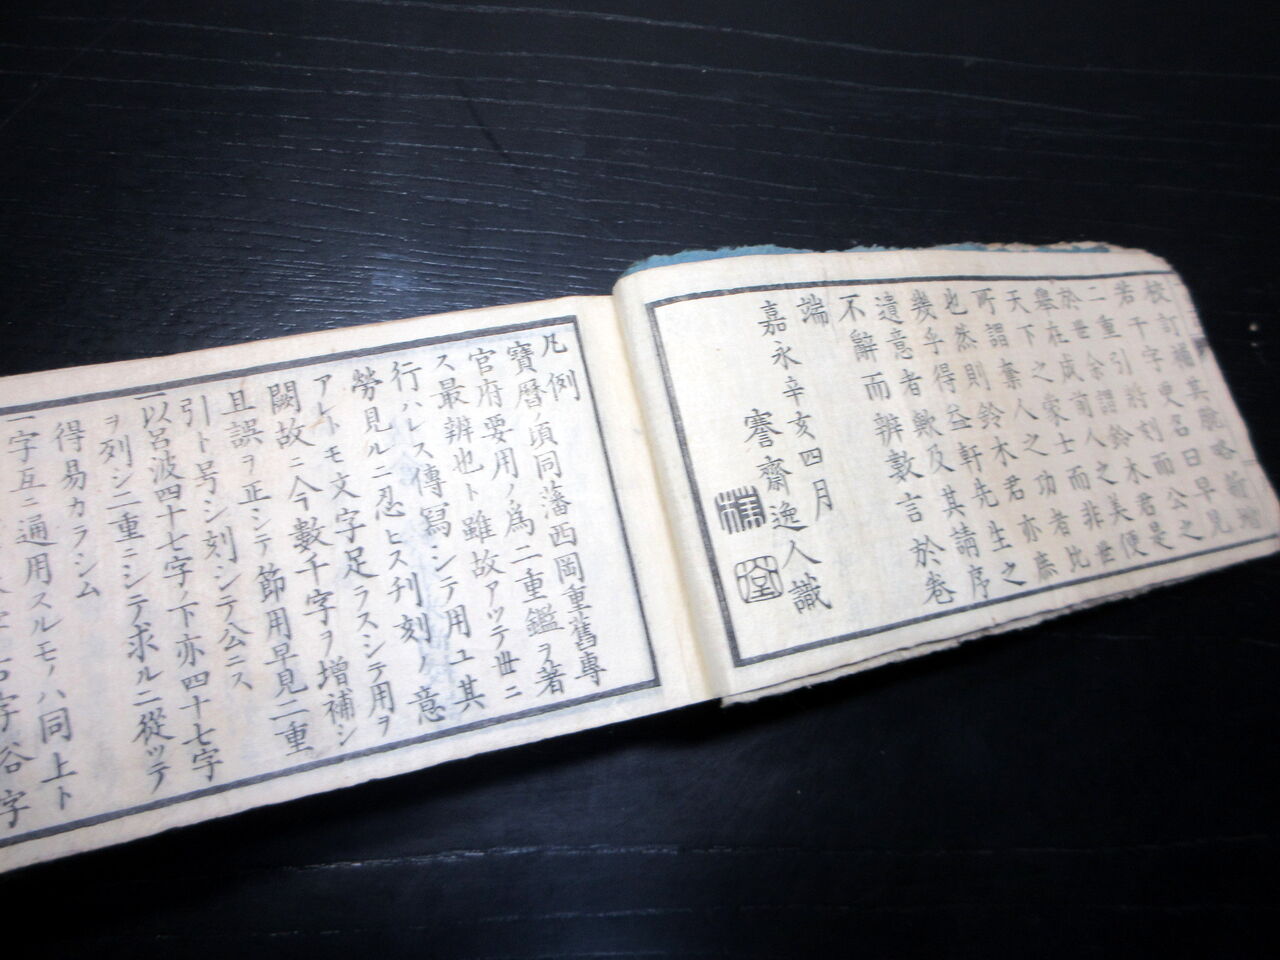 校訂補其脱略新増
若干字更名曰早見
二重引将刻而公之
於世余謂人之美便
擧在成前士而非世
天下之蒙之功者比
所謂棄人君亦庶
也然則鈴木先生之
幾乎得益軒其請序
遺意者歟及言於巻
不辭而辨數
端
嘉永辛亥四月
謇齋逸人識
凡例
寶暦ノ頃同藩西岡重舊専
官府要用ノ為二重鑑ヲ著
ス最辨也ト雖故アツテ世ニ
行ハレス傳寫シテ用ユ其
勞見ルニ忍ヒス刊刻ノ意
アレトモ文字足ラスシテ用ヲ
闕故ニ今數千字ヲ増補シ
且誤ヲ正シテ節用早見二重
引ト号シ刻シテ公ニス
一以呂波四十七字ノ下亦四十七字
ヲ列シ二重ニシテ求ルニ從ツテ
得易カラシム
一字互ニ通用スルモノハ同上ト